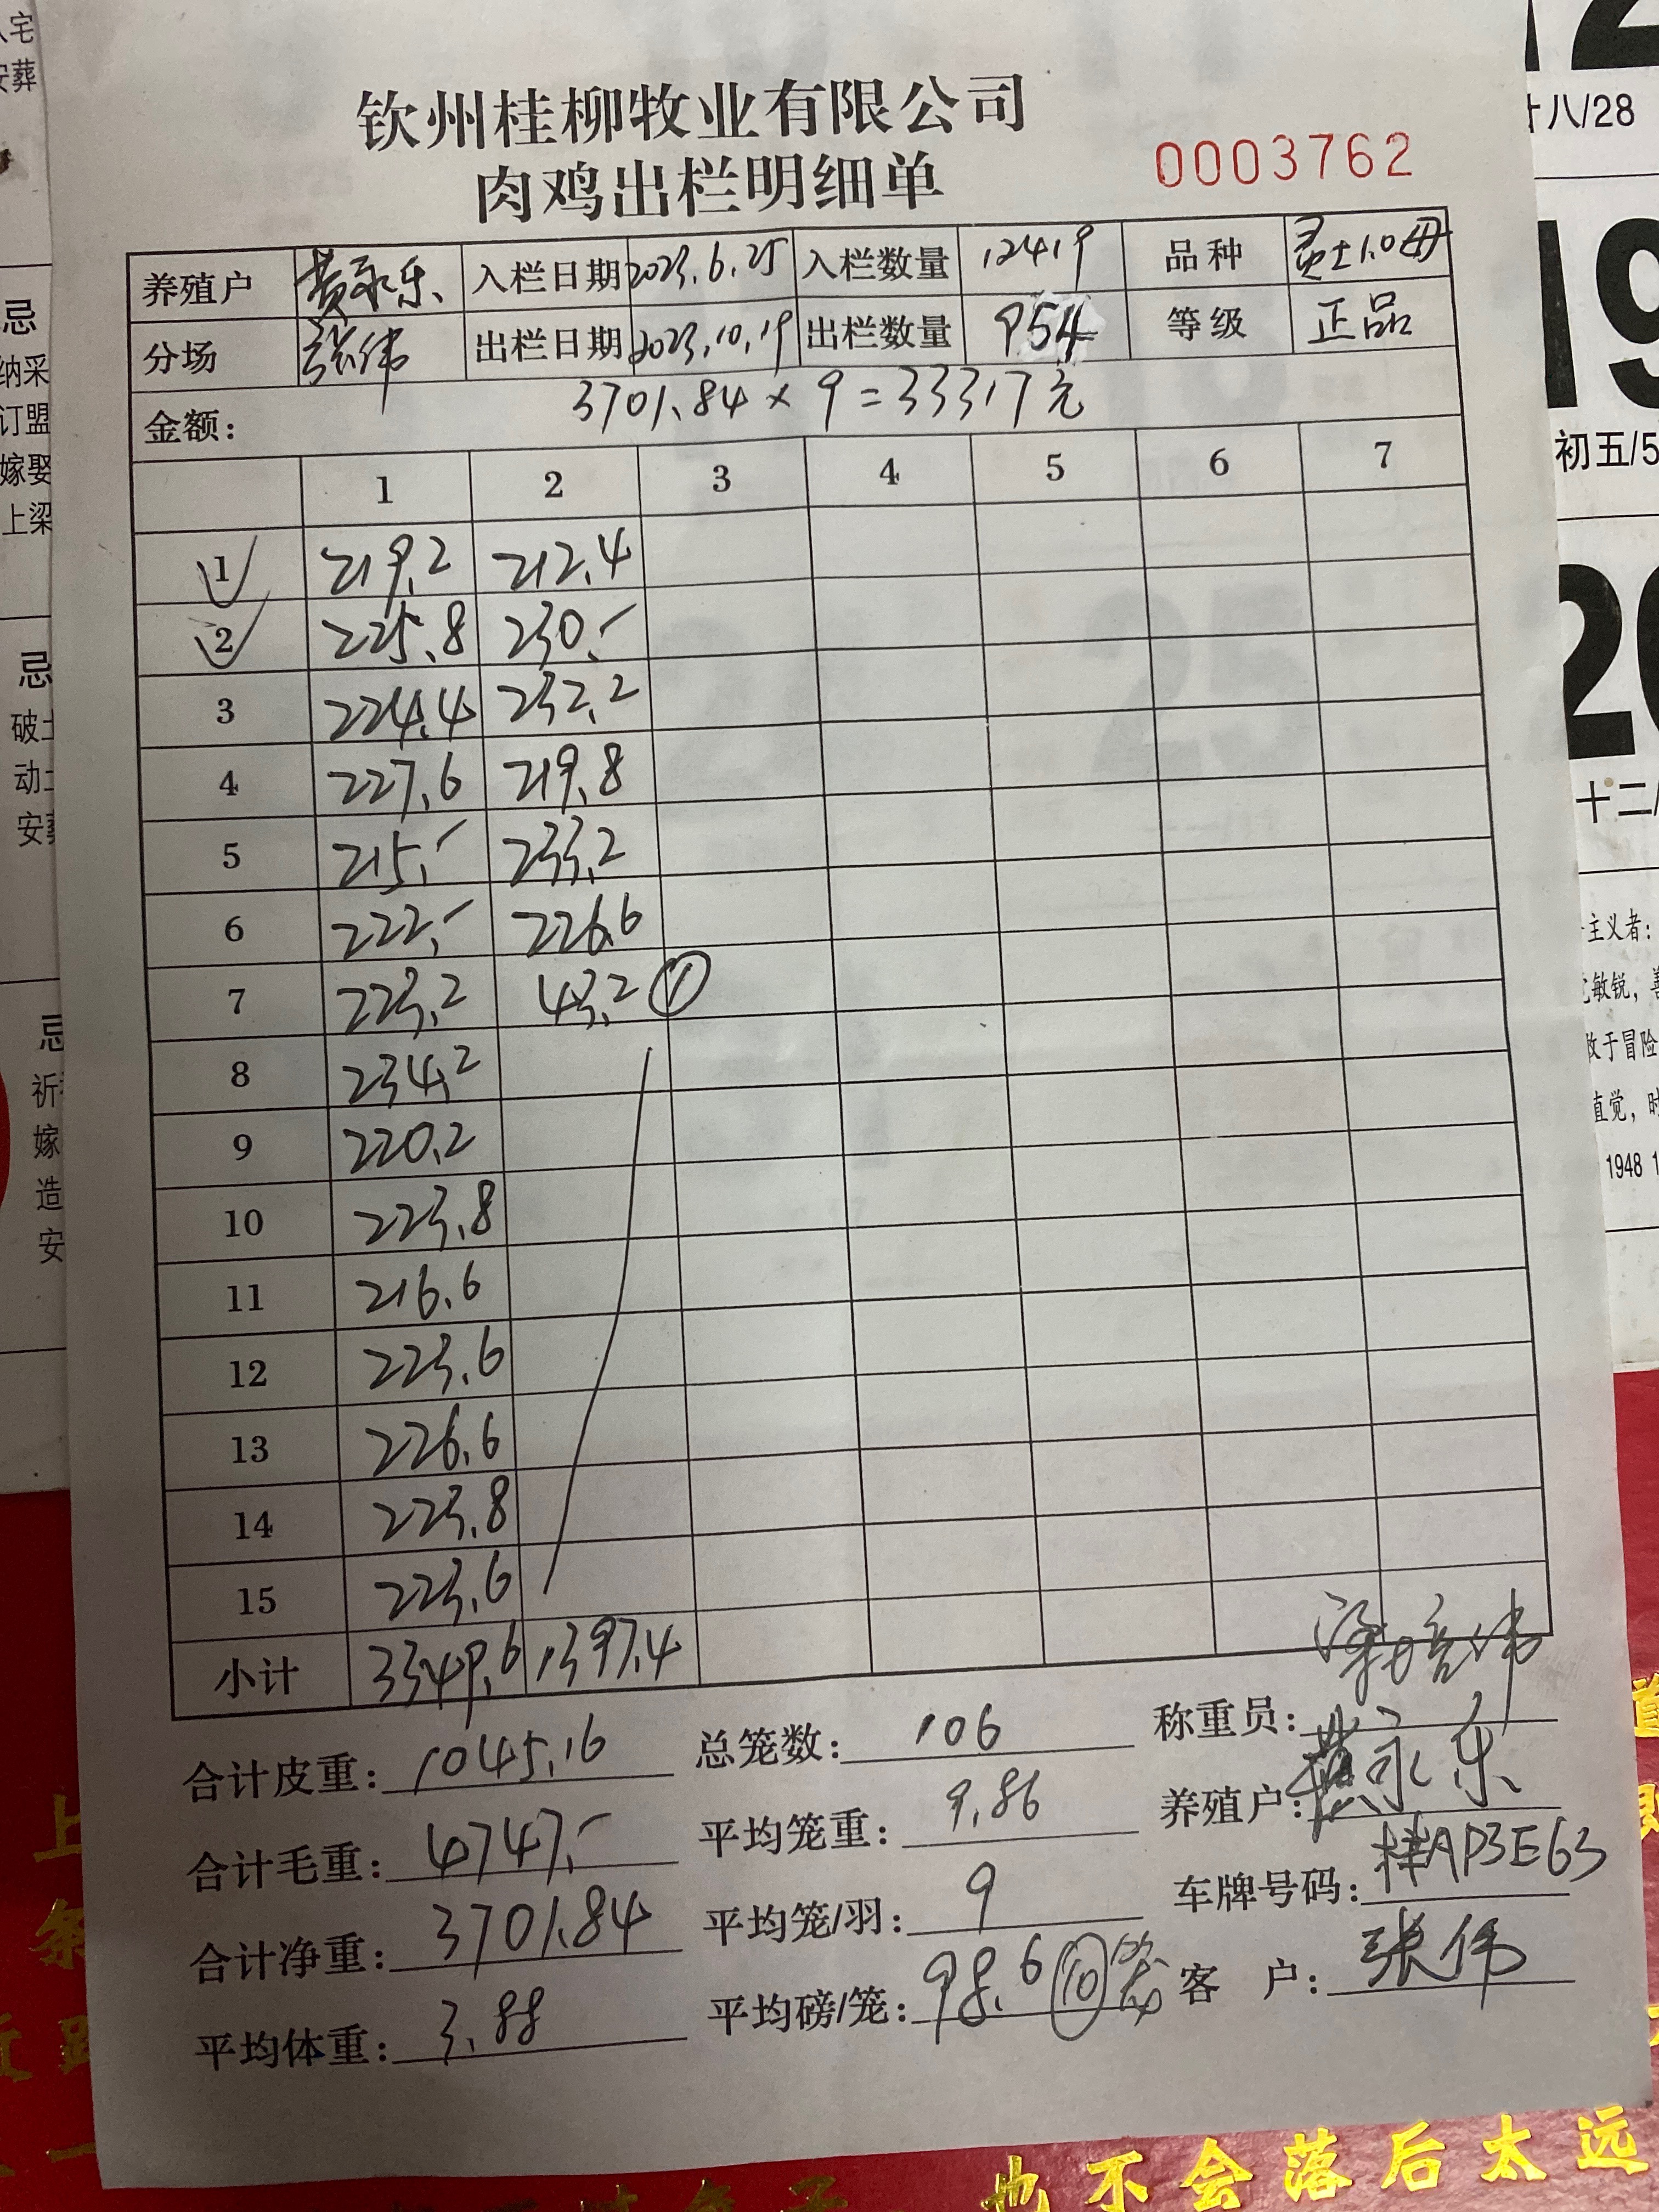 钦州桂柳牧业有限公司
肉鸡出栏明细单
0003762
养殖户 黄永东 入栏日期 2023.6.25 入栏数量 12419 品种 土1.0毋
分场 张伟 出栏日期 2023.10.19 出栏数量 954 等级 正品
金额: 3701.84×9=33317元
1 2 3 4 5 6 7
1 219.2 212.4
2 225.8 230.-
3 224.4 232.2
4 227.6 219.8
5 215.- 233.2
6 222.- 226.6
7 223.2 43.2 ①
8 234.2
9 220.2
10 223.8
11 216.6
12 223.6
13 226.6
14 223.8
15 223.6
小计 3349.6 1397.4
合计皮重: 1045.16 总笼数: 106 称重员: 梁培伟
合计毛重: 4747.- 平均笼重: 9.86 养殖户: 黄永东
合计净重: 3701.84 平均笼/羽: 9 车牌号码: 桂AP3E63
平均体重: 3.88 平均磅/笼: 98.6 ⑩ 客 户: 张伟
入宅
安葬
忌
纳采
订盟
嫁娶
上梁
忌
破土
动土
安葬
忌
嫁
造
安
12
廿八/28
19
初五/5
20
十二/
主义者:
敏锐,
于冒险
直觉,
1948
也不会落后太远